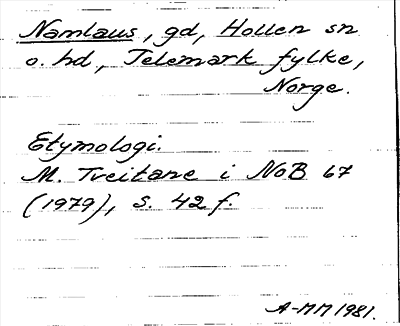 Namlaus, gd, Hollen sn
o. hd, Telemark fylke,
Norge.
Etymologi.
M. Tveitane i NoB 67
(1979), s. 42 f.
A-MM 1981.